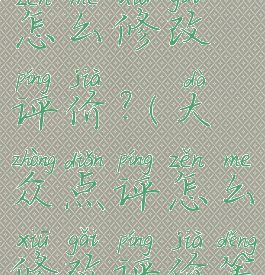 zěn me xiū gǎi
怎么修改
píng jià dà
评价?(大
zhòng diǎn píng zěn me
众点评怎么
xiū gǎi píng jià děng
修改评价等